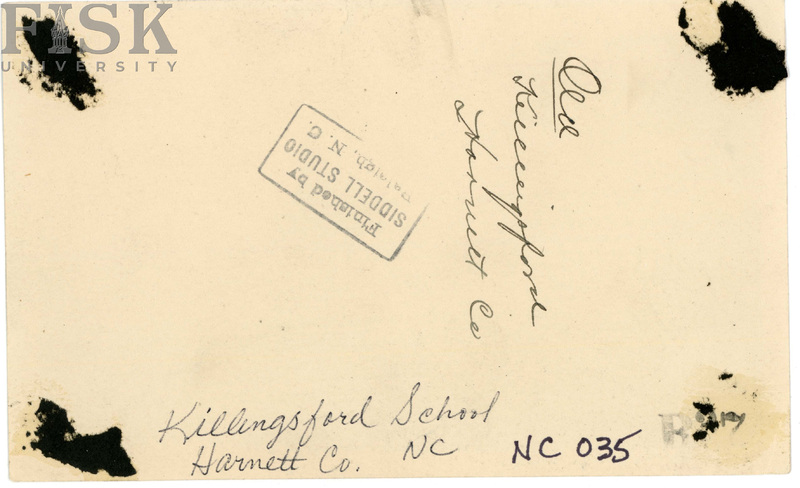 FISK
UNIVERSITY
Old
Killingsford
Harnett Co
Finished by
SIDDELL STUDIO
Raleigh, N. C.
Killingsford School
Harnett Co. NC
NC 035